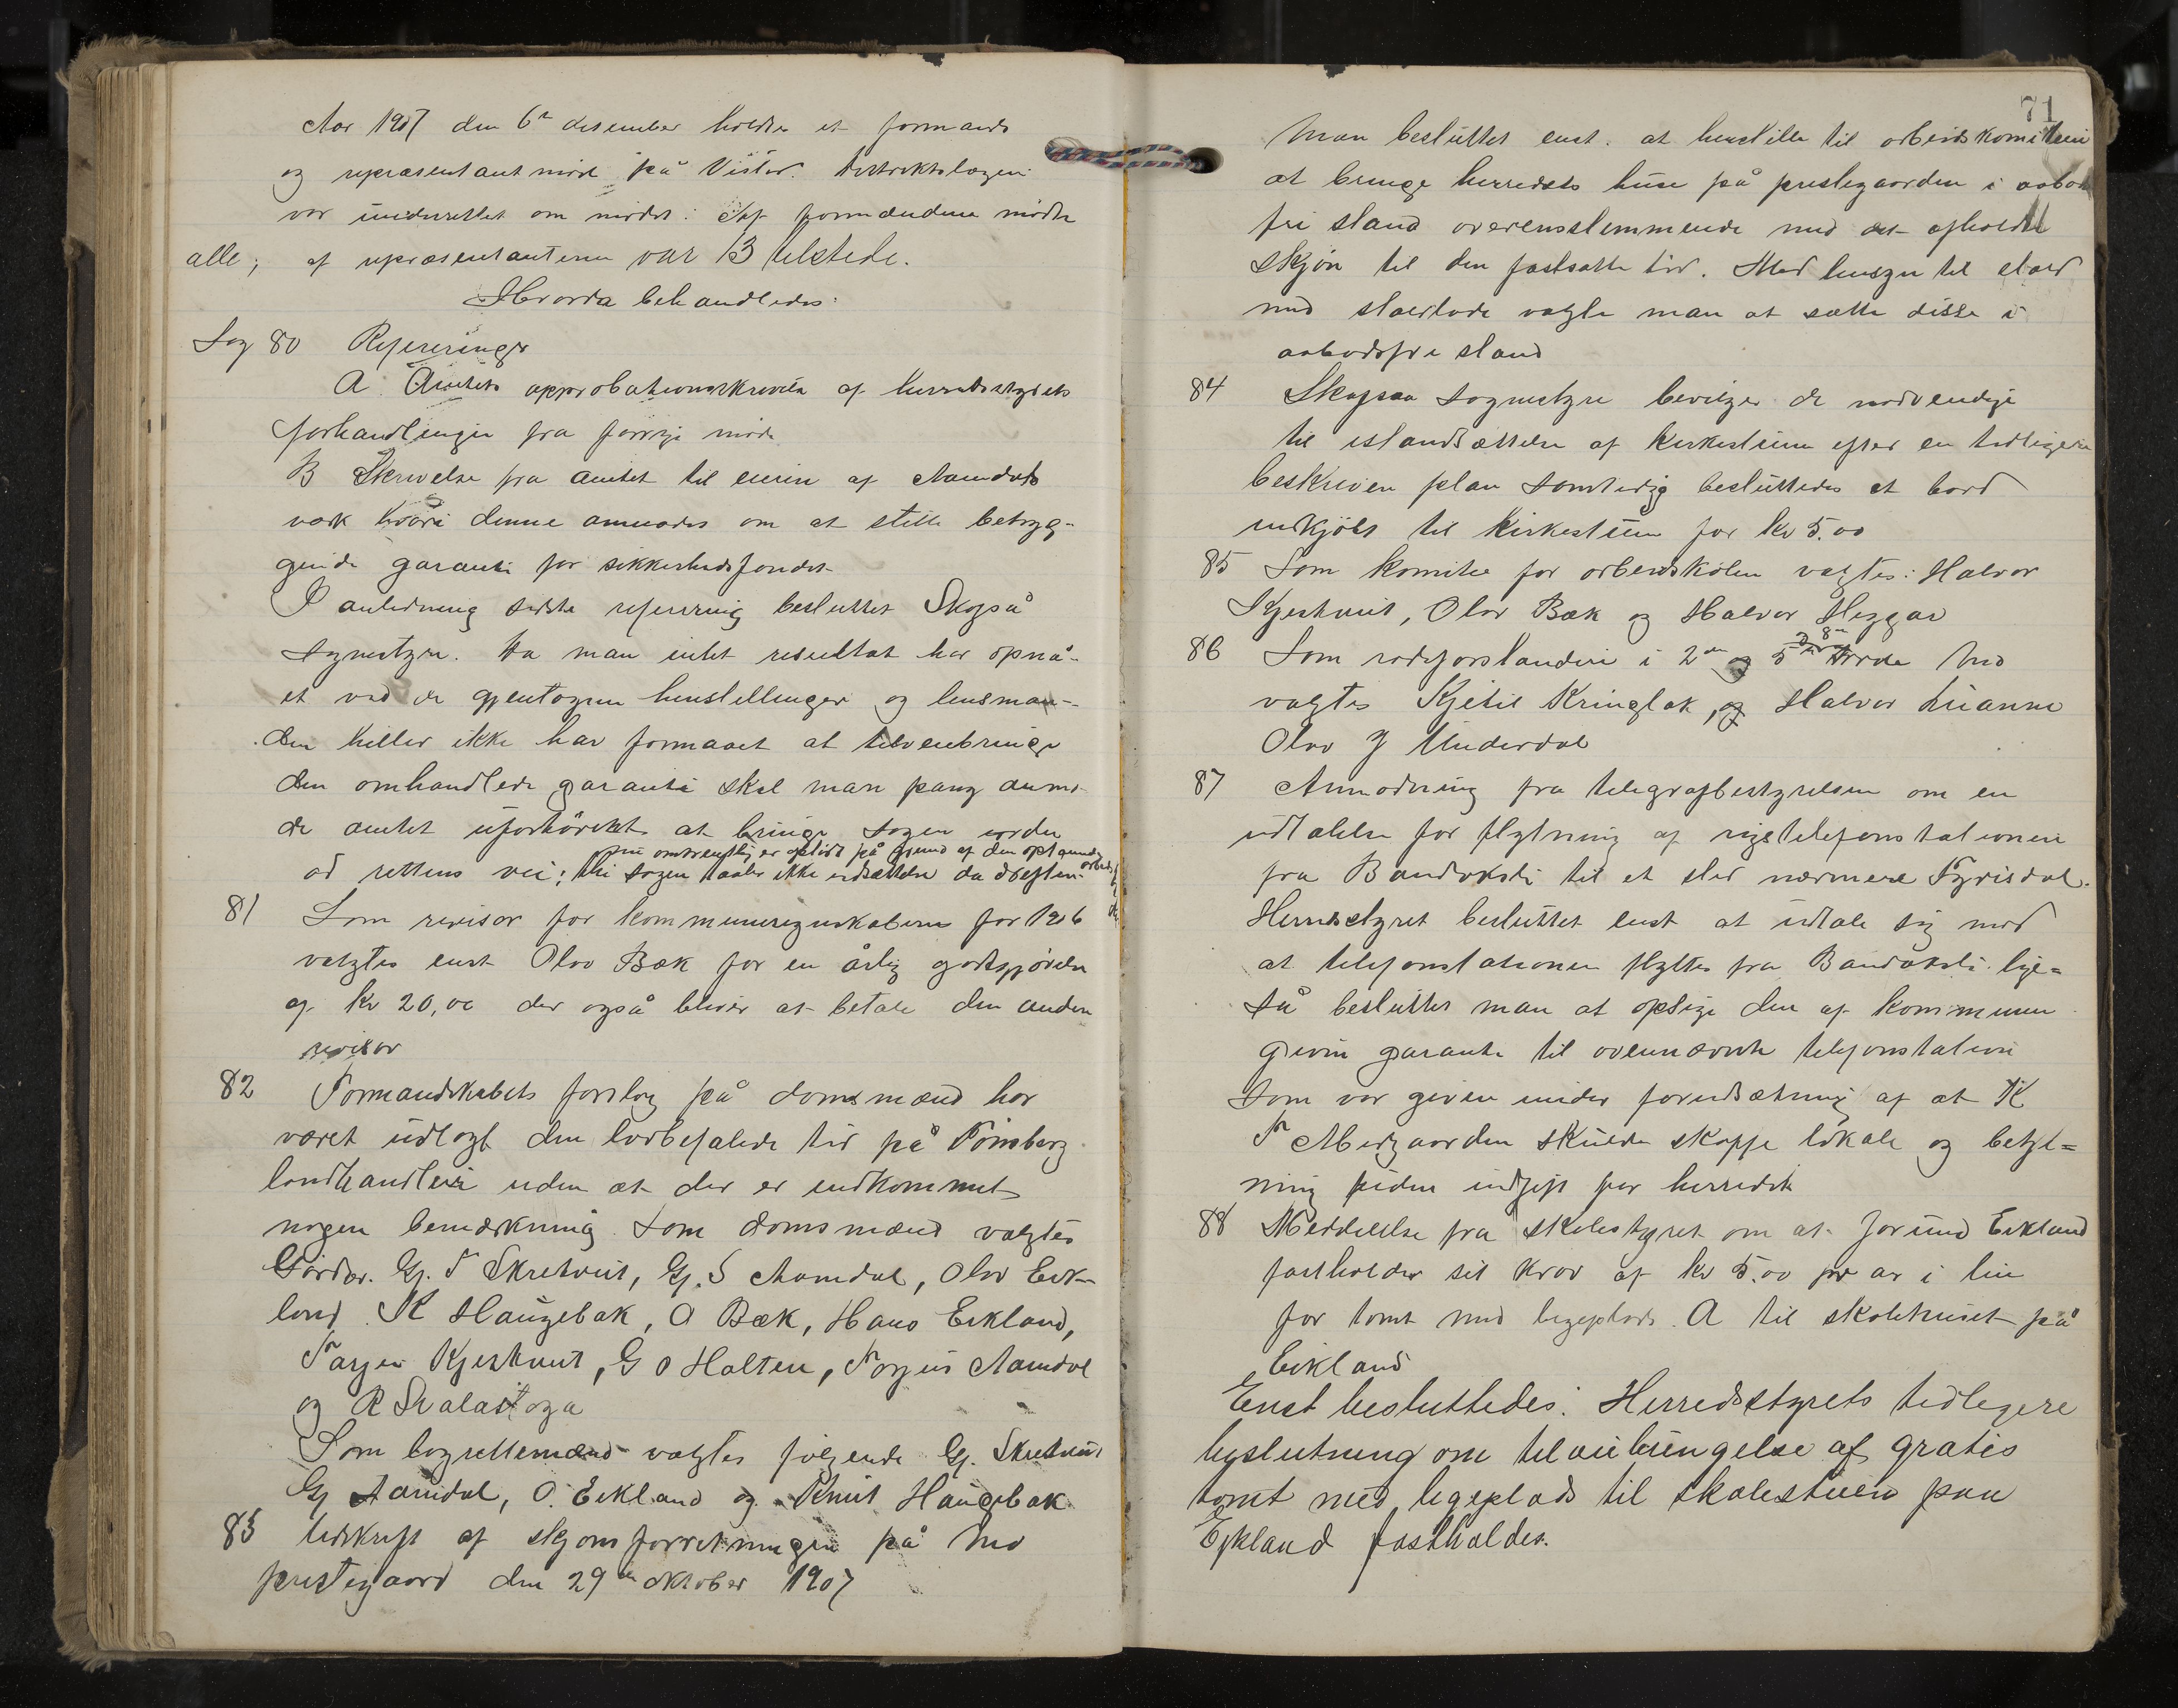 Aar 1907 den 6te desember holdtes et formands
og repræsentantmöde på Vistad. Distriktslægen
var underrettet om mödet. Af formændene mödte
alle; af repræsentanterne var 13 tilstede.
Hvorda behandledes:
Sag 80 Refereringer
A. Amtets approbationsskrivelse af herredsstyrets
forhandlinger fra forrige möde
B Skrivelse fra amtet til eieren af Aamdals
verk hvori denne anmodes om at stille betryg-
gende garanti for sikkerhedsfondet
I anledning sidste referering besluttet Skafså
sognestyre. Da man intet resultat har opnå-
et ved de gjentagne henstillinger og lensman-
den heller ikke har formaaet at tilveiebringe
den omhandlede garanti skal man paany anmo-
de amtet ufortövet at bringe sagen
ad rettens vei; thi sagen taaler ikke udsættelse da driften
nu omtrentlig er ophört på grund af den
81 Som revisor for kommuneregnskaberne for 1906
valgtes enst Olav Bæk for en årlig godtgjörelse
af kr 20,00 der også bliver at betale den anden
revisor
82 Formandskabets forslag på domsmænd har
været udlagt den lovbefalede tid på Tönsberg
landhandleri uden at der er indkommet
nogen bemærkning Som domsmænd valgtes
Gj. T Skretveit, Gj. S Aamdal, Olav Eik-
land K Haugebak, O Bæk, Hans Eikland,
Torjer Kjerkveit, G O Holten, Torjus Aamdal
og R Skalastoga
Som lagrettemænd valgtes fölgende Gj. Skretveit
Gj Aamdal, O. Eikland og Knut Haugebak
83 Udskrift af skjönsforretningen på Mo
prestegaard den 29de oktober 1907
71
Man besluttet enst. at henstille til arbeidskomiteen
at bringe herredets huse på prestegaarden i aabods
fri stand overensstemmende med det afholdte
skjön til den fastsatte tid. Med hensyn til stald
med staldlade valgte man at sætte disse i
aabodsfri stand
84 Skafsaa sognestyre beviliger de nödvendige
til istandsættelse af kirkestuen efter en tidligere
beskreven plan samtidig besluttedes et bord
indkjöbt til kirkestuen for kr 5.00
85 Som komite for arbeidskolen valgtes: Halvor
Kjerkveit, Olav Bæk og Halvor Heggar
86 Som rodeforstandere i 2den og 5te 8de rode Mo
valgtes Kjetil Kringlak, og Halvor Luanne
Olav J Underdal
87 Anmodning fra telegrafbestyrelsen om en
udtalelse for flytning af rigstelefonstationen
fra Bandaksli til et sted nærmere Fyrisdal.
Herredsstyret besluttet enst at udtale sig mod
at telefonstationen flyttes fra Bandaksli lige=
så besluttet man at opsige den af kommunen
given garanti til ovennævnte telefonstation
som var given under forudsætning af at K
T Midgaarden skulde skaffe lokale og betje=
ning uden udgift for herredet
88 Meddelelse fra skolestyret om at Jorund Eikland
fastholder sit krav af kr 5.00 pr aar i leie
for tomt med legeplads til skolehuset på
Eikland
Enst besluttedes: Herredsstyrets tidligere
beslutning om tilveibringelse af gratis
tomt med legeplads til skolestuen paa
Eikland fastholdes.